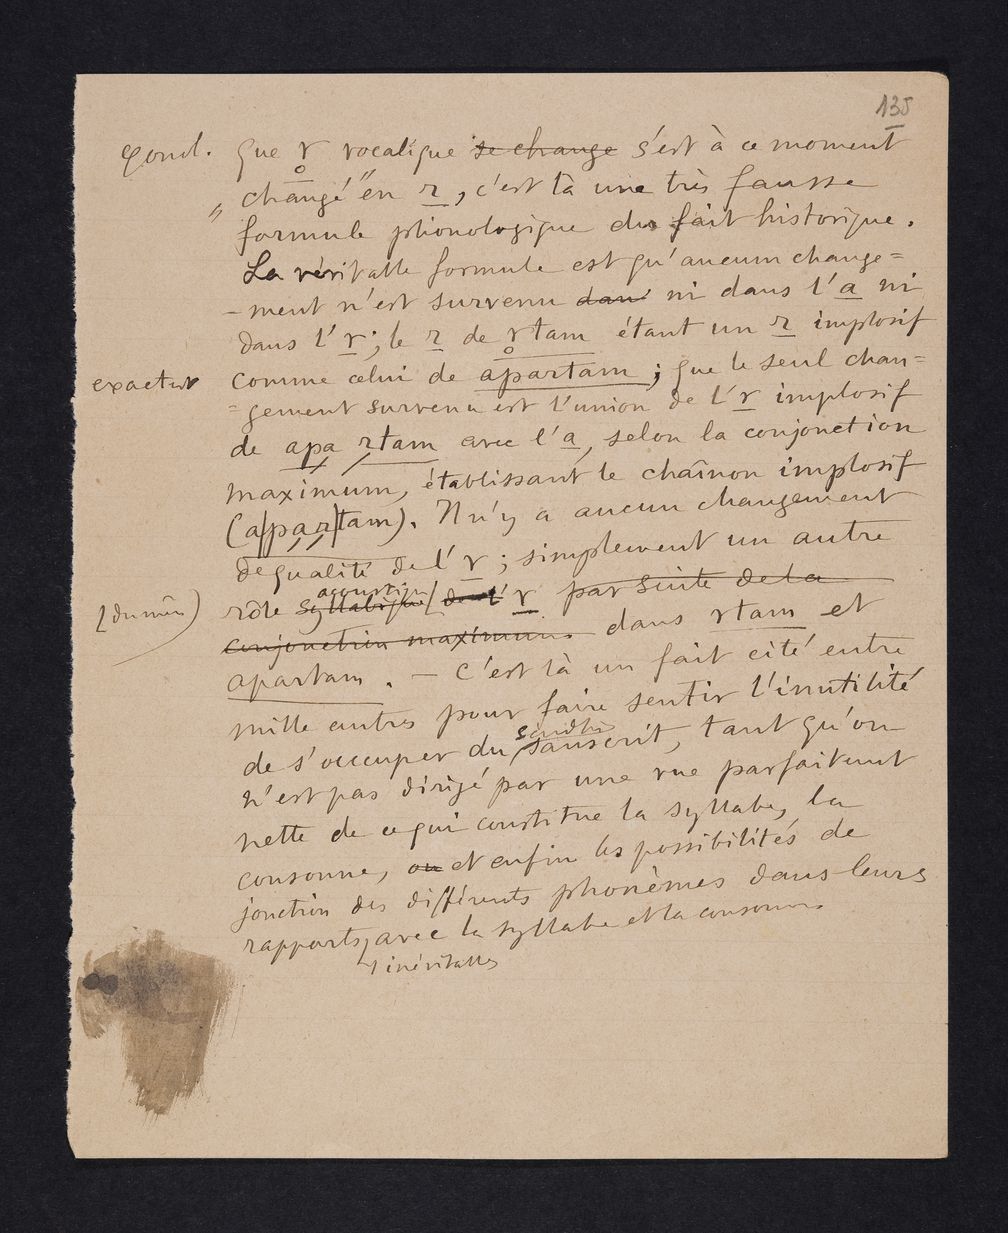 135
que r̥ vocalique se change s'est à ce moment
„ changé" en r, c'est là une très fausse
formule phonologique du fait historique.
La véritable formule est qu'aucun change=
-ment n'est survenu dans ni dans l'a ni
dans l'r; le r de r̥tam étant un r implosif
exactemt comme celui de apartam; que le seul chan=
=gement survenu est l'union de l'r implosif
de apa rtam avec l'a, selon la conjonction
maximum, établissant le chaînon implosif
(a/par/tam). Il n'y a aucun changement
de qualité de l'r; simplement un autre
acoustiq
(du mêm) rôle syllabique / de l'r par suite de la
conjonction maximum. dans rtam et
apartam. — C'est là un fait cité entre
mille autres pour faire sentir l'inutilité
sandhi
de s'occuper du sanscrit, tant qu'on
n'est pas dirigé par une vue parfaitemnt
nette de ce qui constitue la syllabe, la
consonne, ou et enfin les possibilités de
jonction des différents phonèmes dans leurs
rapports avec la syllabe et la consonne
inévitables